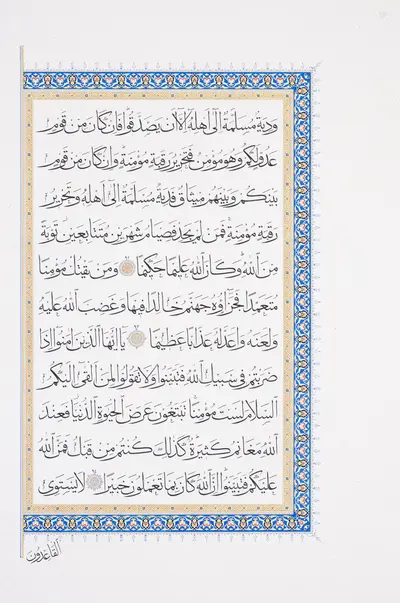 ودية مسلمة الى اهله الا ان يصدقوا فان كان من قوم
عدو لكم وهو مؤمن فتحرير رقبة مؤمنة وان كان من قوم
بينكم وبينهم ميثاق فدية مسلمة الى اهله وتحرير
رقبة مؤمنة فمن لم يجد فصيام شهرين متتابعين توبة
من الله وكان الله عليما حكيما ومن يقتل مؤمنا
متعمدا فجزاؤه جهنم خالدا فيها وغضب الله عليه
ولعنه واعد له عذابا عظيما يا ايها الذين امنوا اذا
ضربتم في سبيل الله فتبينوا ولا تقولوا لمن القى اليكم
السلام لست مؤمنا تبتغون عرض الحيوة الدنيا فعند
الله مغانم كثيرة كذلك كنتم من قبل فمن الله
عليكم فتبينوا ان الله كان بما تعملون خبيرا لا يستوى
القاعدون